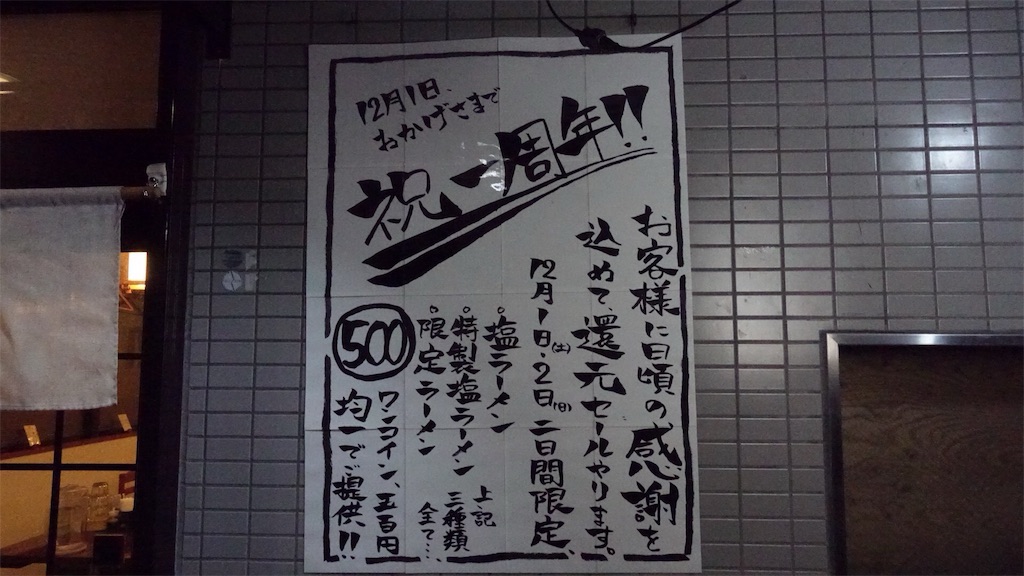 12月1日、
おかげさまで
祝一周年!!
お客様に日頃の感謝を
込めて還元セールやります。
12月1日(土)・2日(日)二日間限定、
。塩ラーメン
。特製塩ラーメン
。限定ラーメン
上記
三種類
全て…
500
ワンコイン、五百円
均一でご提供!!